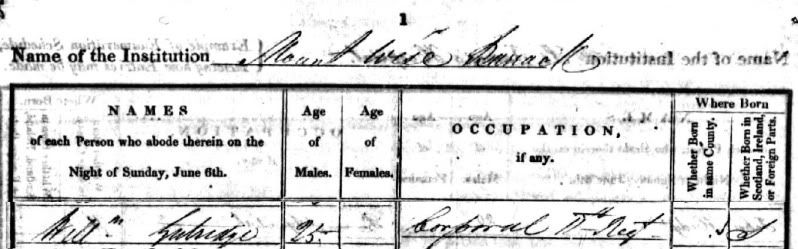 1
Name of the Institution Mount Wise Barrack
NAMES
of each Person who abode therein on the
Night of Sunday, June 6th.
Age
of
Males.
Age
of
Females.
OCCUPATION,
if any.
Where Born
Whether Born
in same County.
Whether Born in
Scotland, Ireland,
or Foreign Parts.
Willm Gutridge 25 Corporal Regt